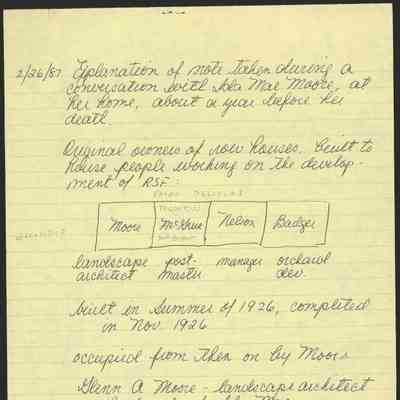 2/26/87 Explanation of note taken during a
conversation with Ida Mae Moore, at
her home, about a year before her
death.
Original owners of row houses. Built to
house people working on the develop-
ment of RSF:
Moore McKhue Nelson Badger
landscape post- manager orchard
architect master dev.
built in Summer of 1926, completed
in Nov. 1926
occupied from then on by Moores
Glenn A Moore - landscape architect